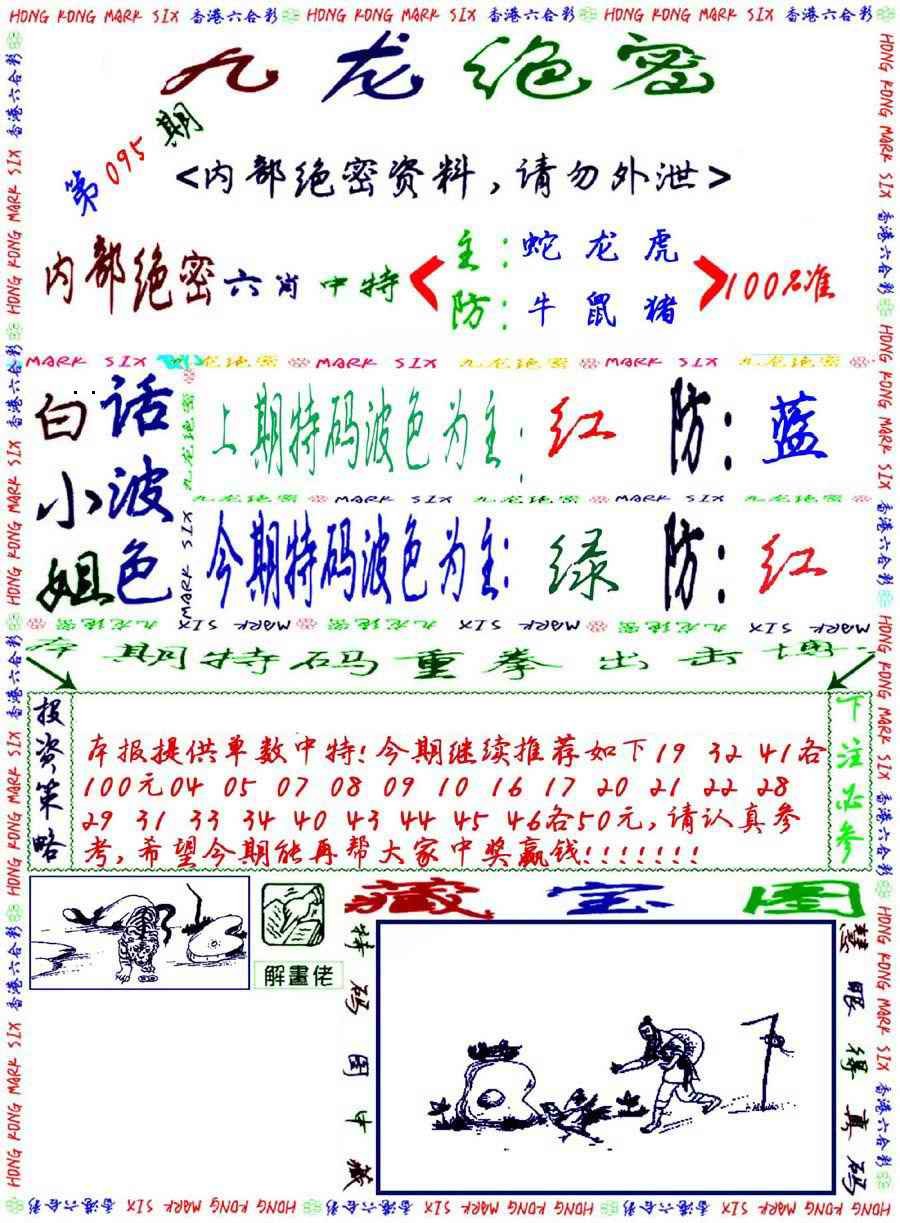 HONG KONG MARK SIX 香港六合彩 HONG KONG MARK SIX 香港六合彩 HONG KONG MARK SIX 香港六合彩
九龙绝密
第095期
<内部绝密资料,请勿外泄>
内部绝密六肖中特
主:蛇 龙 虎
防:牛 鼠 猪
100%准
MARK SIX 九龙绝密 MARK SIX 九龙绝密 MARK SIX 九龙绝密
白话
小波
姐色
上期特码波色为主:红 防:蓝
九龙绝密 MARK SIX 九龙绝密 MARK SIX 九龙绝密
今期特码波色为主:绿 防:红
MARK SIX 九龙绝密 MARK SIX 九龙绝密 MARK SIX 九龙绝密
本期特码重拳出击
投资策略
本报提供单数中特!今期继续推荐如下19 32 41各
100元04 05 07 08 09 10 16 17 20 21 22 28
29 31 33 34 40 43 44 45 46各50元,请认真参
考,希望今期能再帮大家中奖赢钱!!!!!!!
下注必参
解畫佬
藏宝图
特码图中藏
慧眼得真码
HONG KONG MARK SIX 香港六合彩 HONG KONG MARK SIX 香港六合彩 HONG KONG MARK SIX 香港六合彩